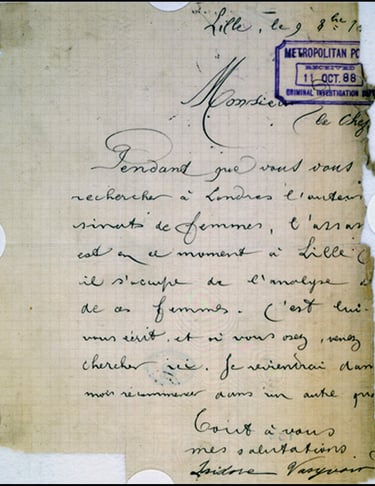 Lille, le 9 8bre
METROPOLITAN PO
RECEIVED
11 OCT. 88
CRIMINAL INVESTIGATION DEP
Monsieur
le Chef
Pendant que vous vous
rechercher à Londres l'auteur
sinats de femmes, l'assas
est en ce moment à Lille
il s'occupe de l'analyse
de ces femmes. C'est lui
vous écrit, et si vous osez, venez
chercher ici. Je reviendrai dans
mois recommencer dans un autre qua
Tout à vous
mes salutations
Isidore